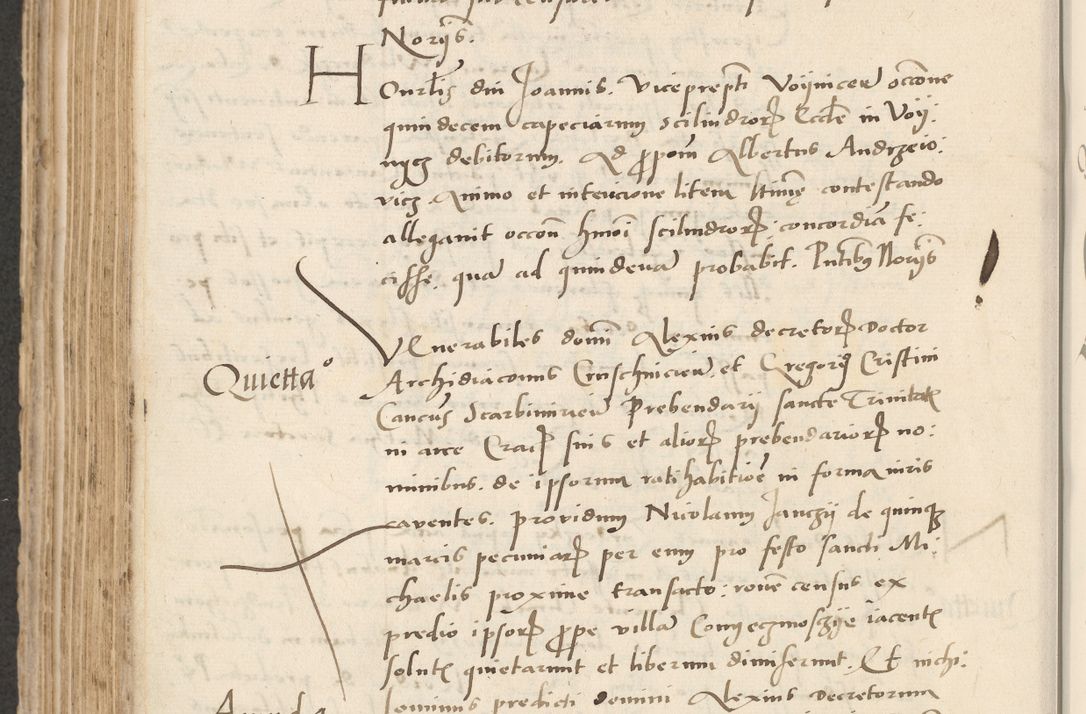 Norijs.
HOnrlis dni Joannis. Viceprepti Voijnicen occone
quindecem capeciarum scilindrorum Eccle in Voij:
nijcz debitorum. Ad ppom Albertus Andrzeio:
vicz Animo et intencione litem contestando
alleganit occon hmoi scilindrorum concordia fe:
cisse. qua ad quindena probabit. Pntibus Norijs
VEnerabiles domi Alexius decretorum Doctor
Quietta
Archidiaconus et Gregorius Cristini
Cancus Scarbimirien Prebendarij sancte Trinitatis
in arce Crac suis et aliorum prebendariorum no:
minibus. de ipsorum ratihabitioe in forma iuris
caventes. providum Nicolaum Janczij de quinque
marcis pecuniarum per eum pro festo sancti Mi:
chaelis proxime transacto: roue census ex
predio ipsorum ppe villa iacentis
solutis quietarunt et liberum dimiserunt. Et nichi:
lominus predicti domini Alexius Decretorum